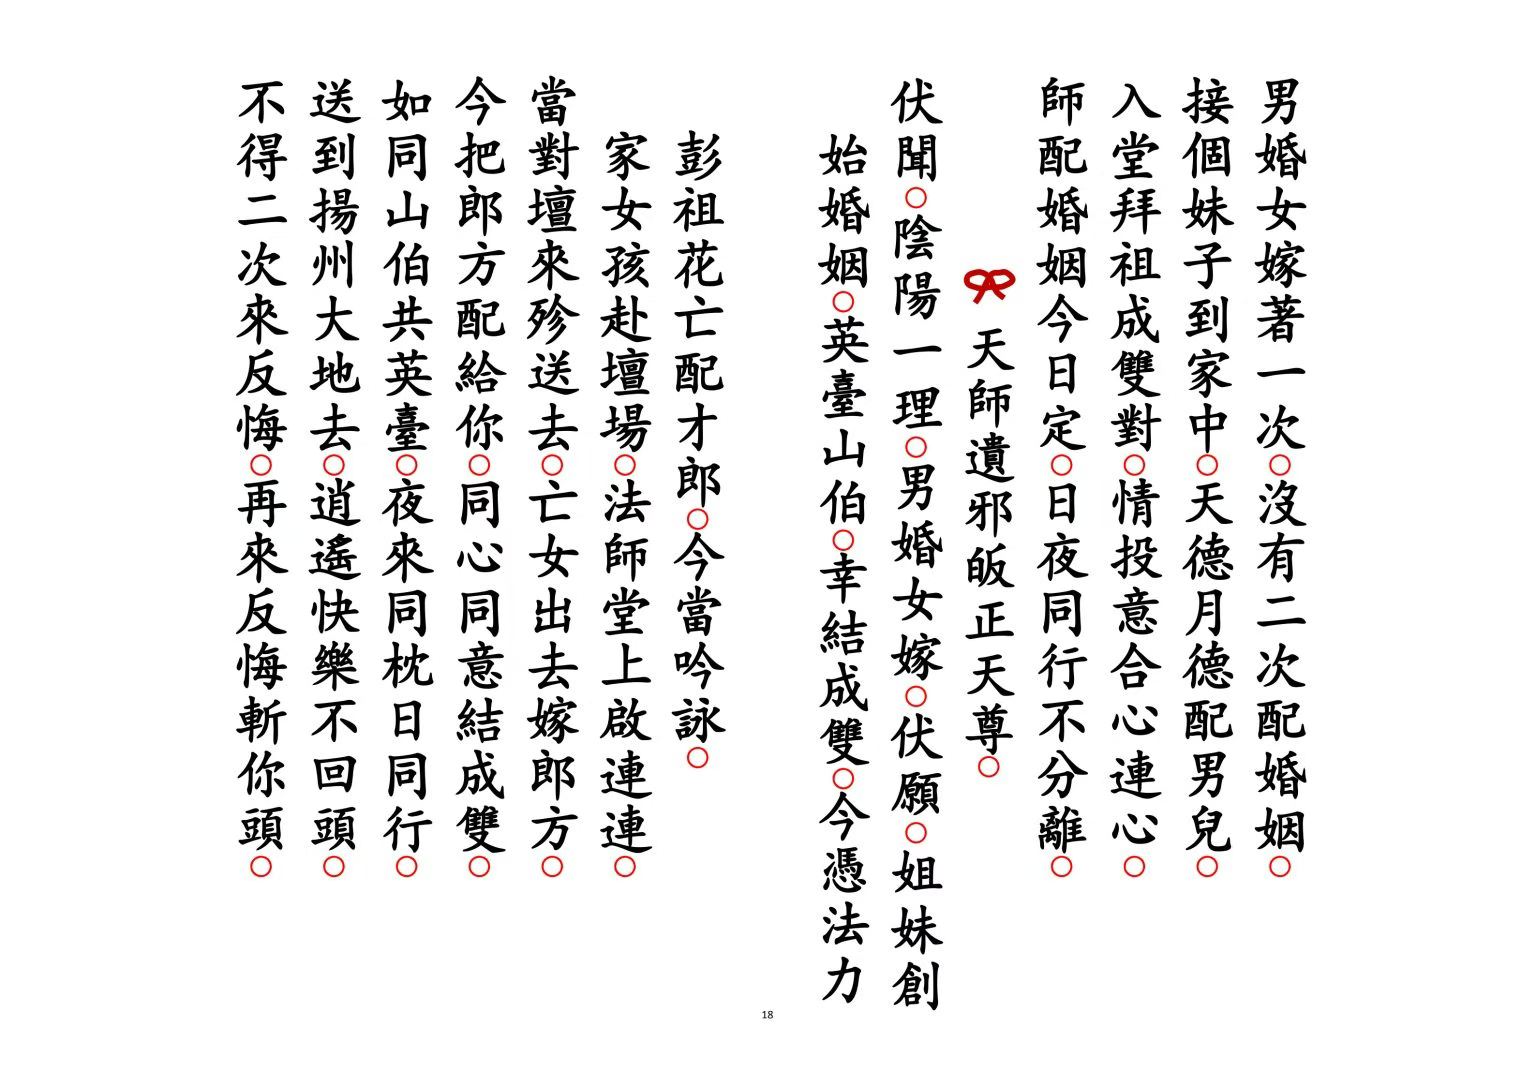 男婚女嫁著一次○沒有二次配婚姻○
接個妹子到家中○天德月德配男兒○
入堂拜祖成雙對○情投意合心連心○
師配婚姻今日定○日夜同行不分離○
天師遺邪皈正天尊○
伏聞○陰陽一理○男婚女嫁○伏願○姐妹創
始婚姻○英臺山伯○幸結成雙○今憑法力
彭祖花亡配才郎○今當吟詠○
家女孩赴壇場○法師堂上啟連連○
當對壇來殄送去○亡女出去嫁郎方○
今把郎方配給你○同心同意結成雙○
如同山伯共英臺○夜來同枕日同行○
送到揚州大地去○逍遙快樂不回頭○
不得二次來反悔○再來反悔斬你頭○
18